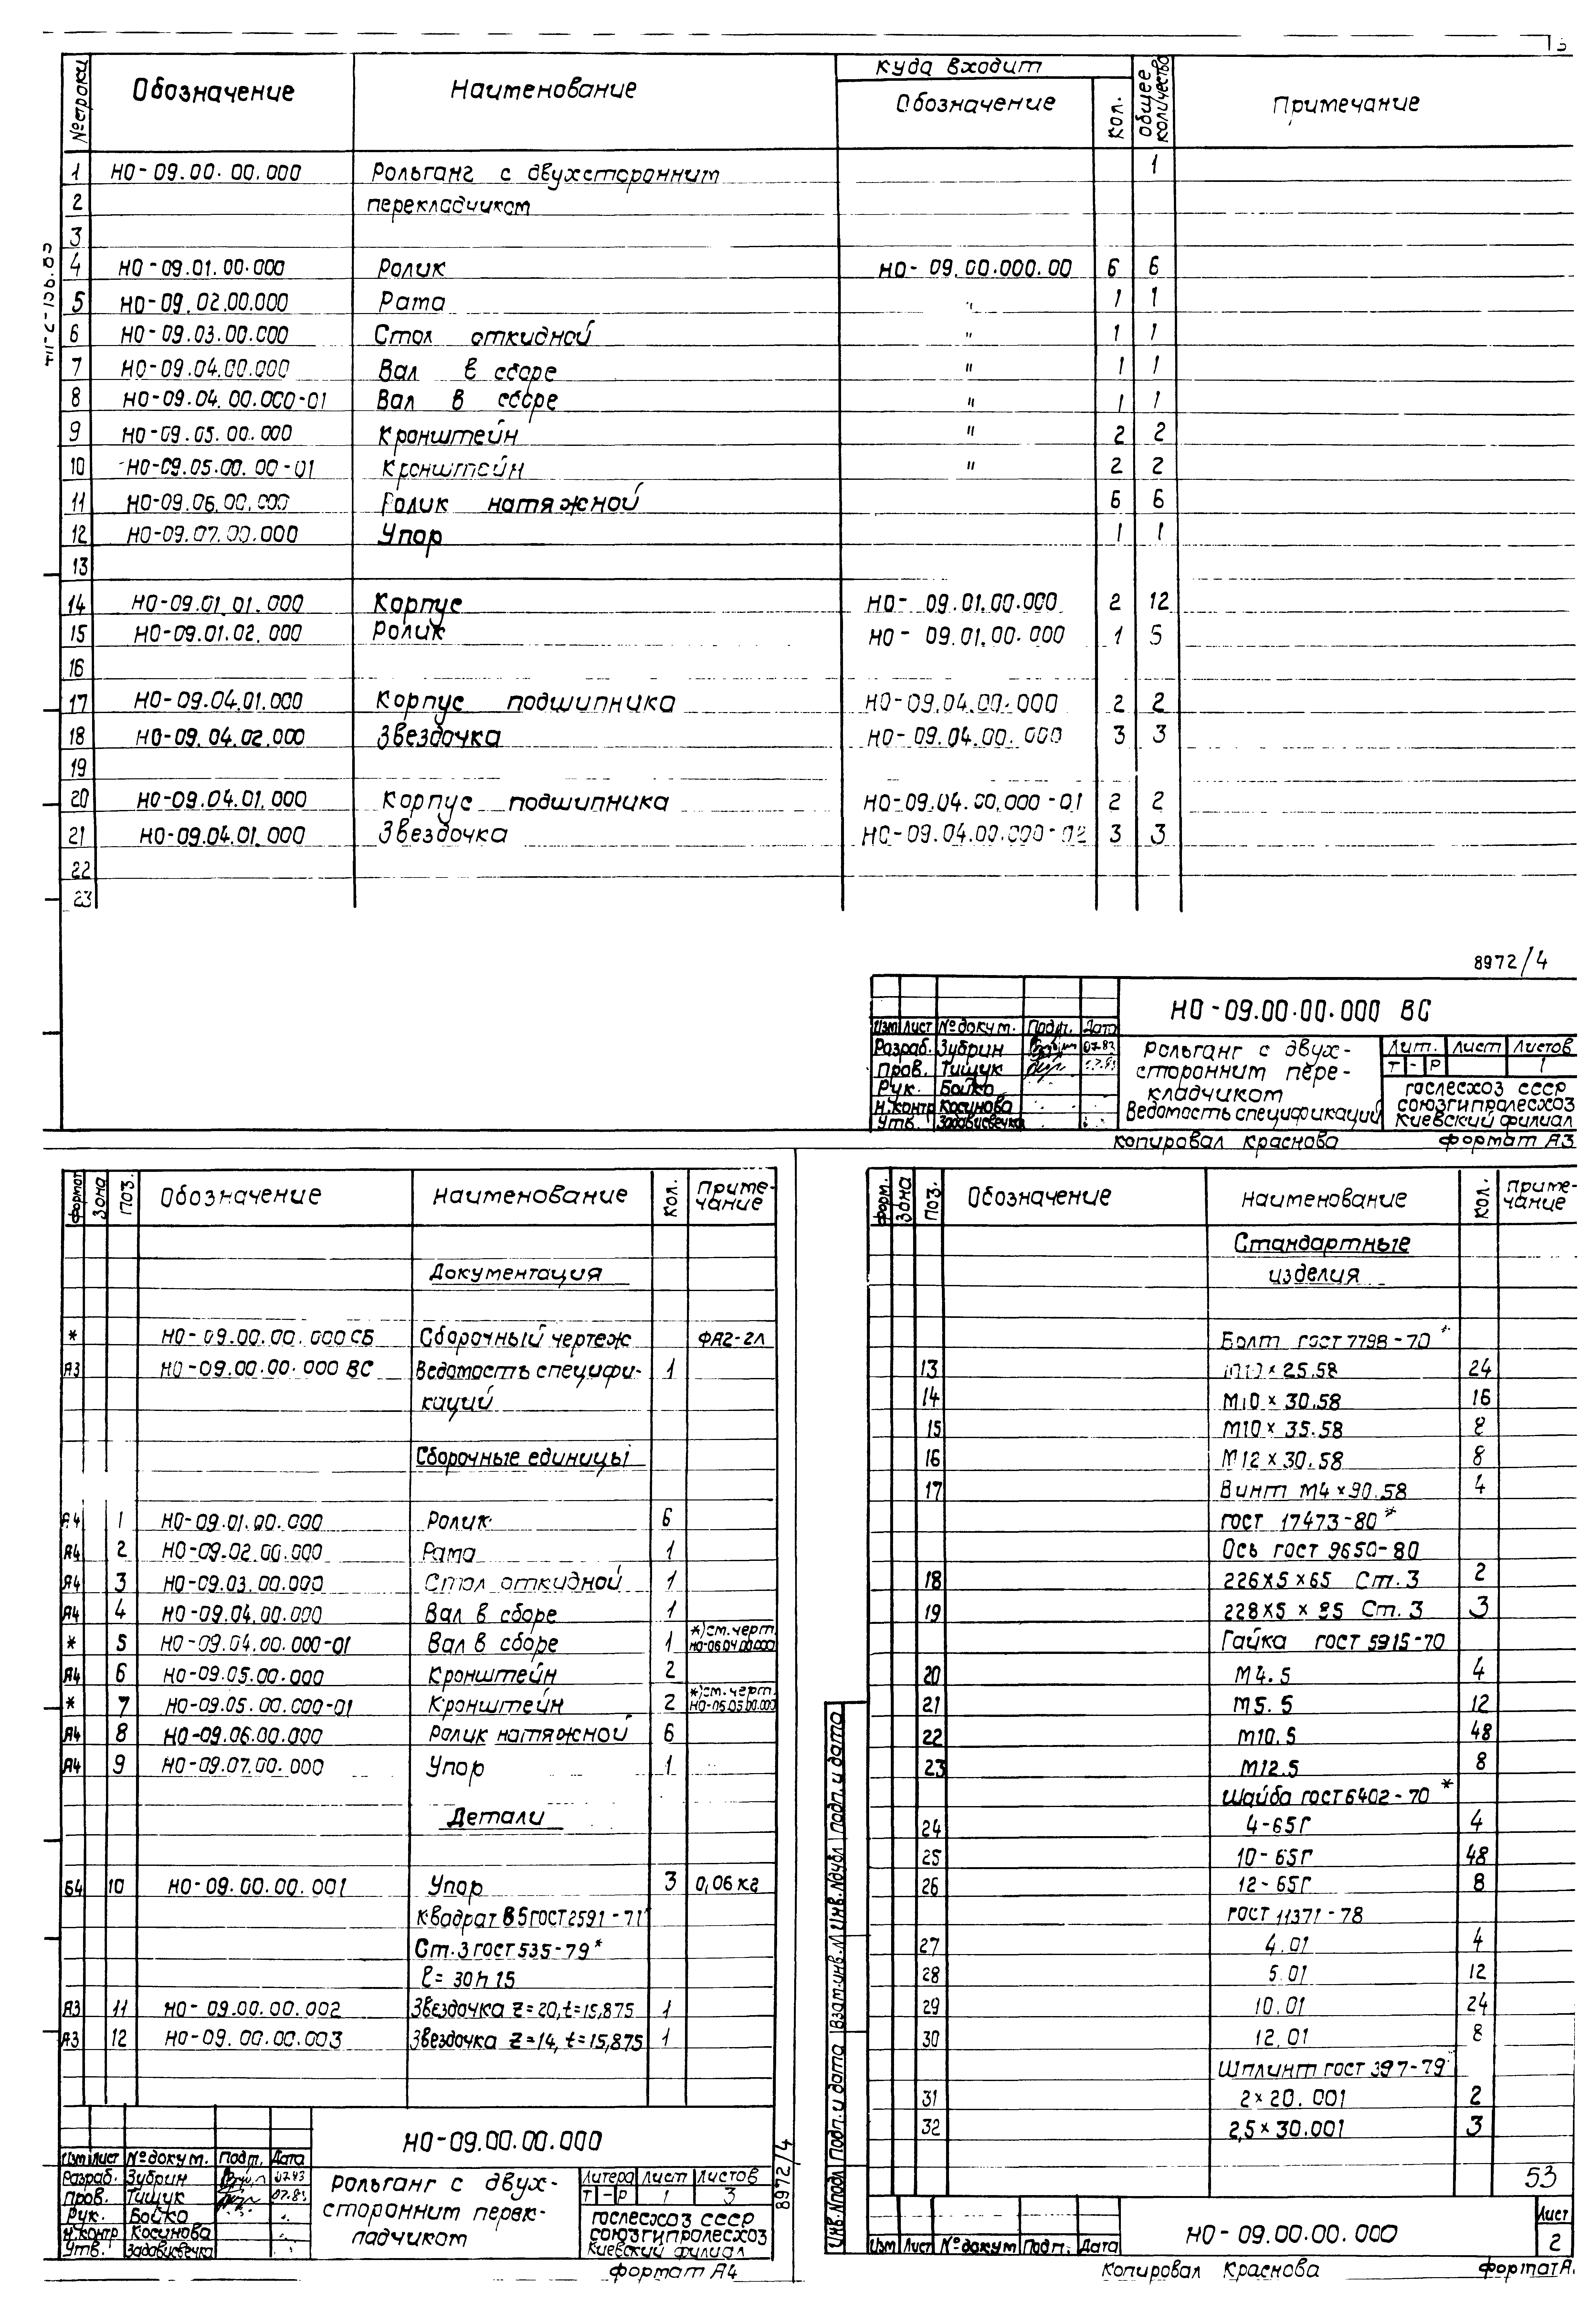 № строки Обозначение Наименование Куда входит Обозначение Кол. Общее количество Примечание
1 НО-09.00.00.000 Рольганг с двухсторонним 1
2 перекладчиком
3
4 НО-09.01.00.000 Ролик НО-09.00.000.00 6 6
5 НО-09.02.00.000 Рама " 1 1
6 НО-09.03.00.000 Стол откидной " 1 1
7 НО-09.04.00.000 Вал в сборе " 1 1
8 НО-09.04.00.000-01 Вал в сборе " 1 1
9 НО-09.05.00.000 Кронштейн " 2 2
10 НО-09.05.00.00-01 Кронштейн " 2 2
11 НО-09.06.00.000 Ролик натяжной 6 6
12 НО-09.07.00.000 Упор 1 1
13
14 НО-09.01.01.000 Корпус НО-09.01.00.000 2 12
15 НО-09.01.02.000 Ролик НО-09.01.00.000 1 5
16
17 НО-09.04.01.000 Корпус подшипника НО-09.04.00.000 2 2
18 НО-09.04.02.000 Звездочка НО-09.04.00.000 3 3
19
20 НО-09.04.01.000 Корпус подшипника НО-09.04.00.000-01 2 2
21 НО-09.04.01.000 Звездочка НО-09.04.00.000-02 3 3
22
23
8972/4
НО-09.00.00.000 ВС
Изм Лист № докум. Подп. Дата
Разраб. Зубрин 07.83
Пров. Тищук 07.83
Рук. Бойко
Н.контр Косинова
Утв.
Рольганг с двух-
сторонним пере-
кладчиком
Ведомость спецификаций
Лит. Лист Листов
Т - Р 1
Гослесхоз СССР
Союзгипролесхоз
Киевский филиал
Копировал Краснова Формат А3
Формат Зона Поз. Обозначение Наименование Кол. Приме-
чание
Документация
* НО-09.00.00.000 СБ Сборочный чертеж ФА2-2л
А3 НО-09.00.00.000 ВС Ведомость специфи- 1
каций
Сборочные единицы
А4 1 НО-09.01.00.000 Ролик 6
А4 2 НО-09.02.00.000 Рама 1
А4 3 НО-09.03.00.000 Стол откидной 1
А4 4 НО-09.04.00.000 Вал в сборе 1
* 5 НО-09.04.00.000-01 Вал в сборе 1 *)см.черт.
НО-06.04.00.000
А4 6 НО-09.05.00.000 Кронштейн 2
* 7 НО-09.05.00.000-01 Кронштейн 2 *)см.черт.
НО-05.05.00.000
А4 8 НО-09.06.00.000 Ролик натяжной 6
А4 9 НО-09.07.00.000 Упор 1
Детали
Б4 10 НО-09.00.00.001 Упор 3 0,06 кг
Квадрат В5 ГОСТ 2591-71
Ст.3 ГОСТ 535-79*
ℓ= 30h15
А3 11 НО-09.00.00.002 Звездочка z=20, t=15,875 1
А3 12 НО-09.00.00.003 Звездочка z=14, t=15,875 1
НО-09.00.00.000
Изм Лист № докум. Подп. Дата
Разраб. Зубрин 07.83
Пров. Тищук 07.83
Рук. Бойко
Н.контр Косинова
Утв.
Рольганг с двух-
сторонним перек-
ладчиком
Литера Лист Листов
Т - Р 1 3
Гослесхоз СССР
Союзгипролесхоз
Киевский филиал
Формат А4
8972/4
Форм. Зона Поз. Обозначение Наименование Кол. Приме-
чание
Стандартные
изделия
Болт ГОСТ 7798-70*
13 М10×25.58 24
14 М10×30.58 16
15 М10×35.58 8
16 М12×30.58 8
17 Винт М4×90.58 4
ГОСТ 17473-80*
Ось ГОСТ 9650-80
18 226х5×65 Ст.3 2
19 228х5×85 Ст.3 3
Гайка ГОСТ 5915-70
20 М4.5 4
21 М5.5 12
22 М10.5 48
23 М12.5 8
Шайба ГОСТ 6402-70*
24 4-65Г 4
25 10-65Г 48
26 12-65Г 8
ГОСТ 11371-78
27 4.01 4
28 5.01 12
29 10.01 24
30 12.01 8
Шплинт ГОСТ 397-79
31 2×20.001 2
32 2,5×30.001 3
53
Инв.№подл Подп. и дата Взам.инв.№ Инв.№дубл Подп. и дата
Изм Лист № докум Подп. Дата
НО-09.00.00.000
Лист
2
Копировал Краснова Формат А